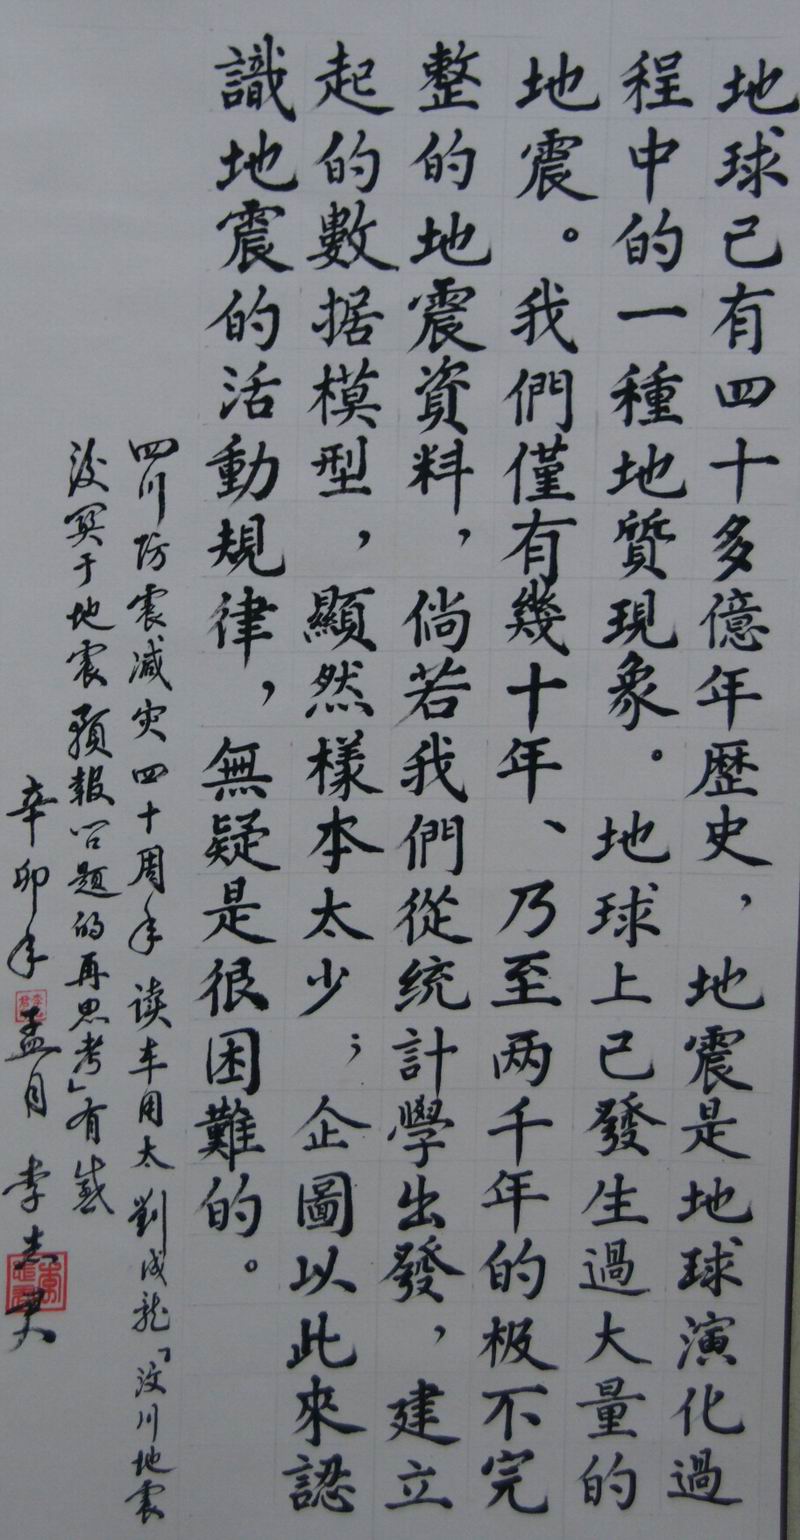 地球已有四十多億年歷史，地震是地球演化過
程中的一種地質現象。地球上已發生過大量的
地震。我們僅有幾十年、乃至两千年的极不完
整的地震資料，倘若我們從統計學出發，建立
起的數据模型，顯然樣本太少；企圖以此來認
識地震的活動規律，無疑是很困難的。
四川防震减灾四十周年读车用太劉成龍「汶川地震
后関于地震預報问题的再思考」有感
辛卯年孟月李志